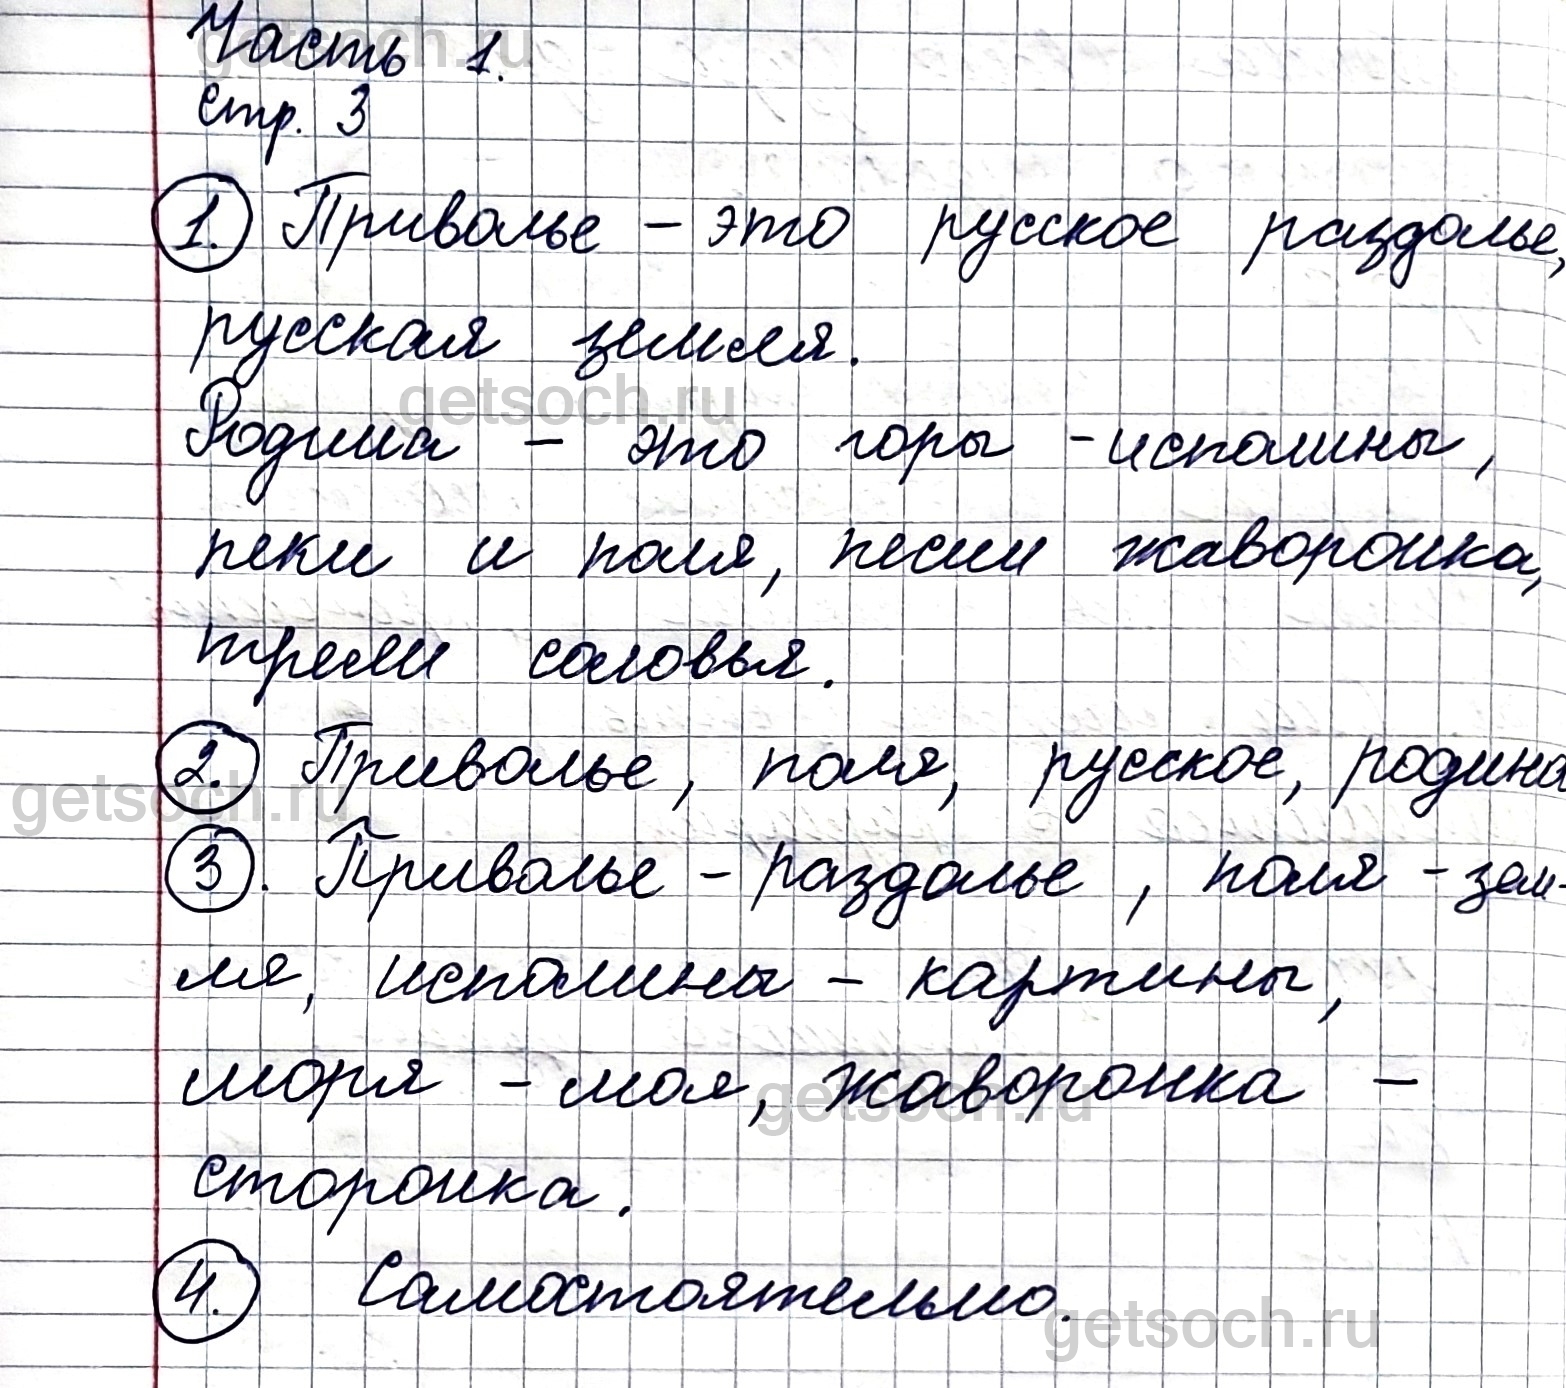 Часть 1.
Стр. 3
1. Приволье – это русское раздолье,
русская земля.
Родина – это горы - исполины,
реки и поля, песни жаворонка,
трели соловья.
2. Приволье, поля, русское, родина
3. Приволье – раздолье, поля – зем-
ля, исполины – картины,
моря – моя, жаворонка –
сторонка.
4. Самостоятельно.
getsoch.ru
getsoch.ru
getsoch.ru
getsoch.ru
getsoch.ru